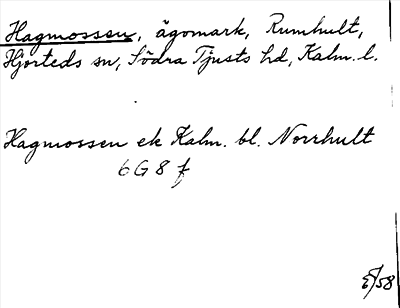 Hagmossen, ägomark, Rumhult,
Hjorteds sn, Södra Tjusts hd, Kalm. l.
Hagmossen ek Kalm. bl. Norrhult
6 G 8 f
5/58